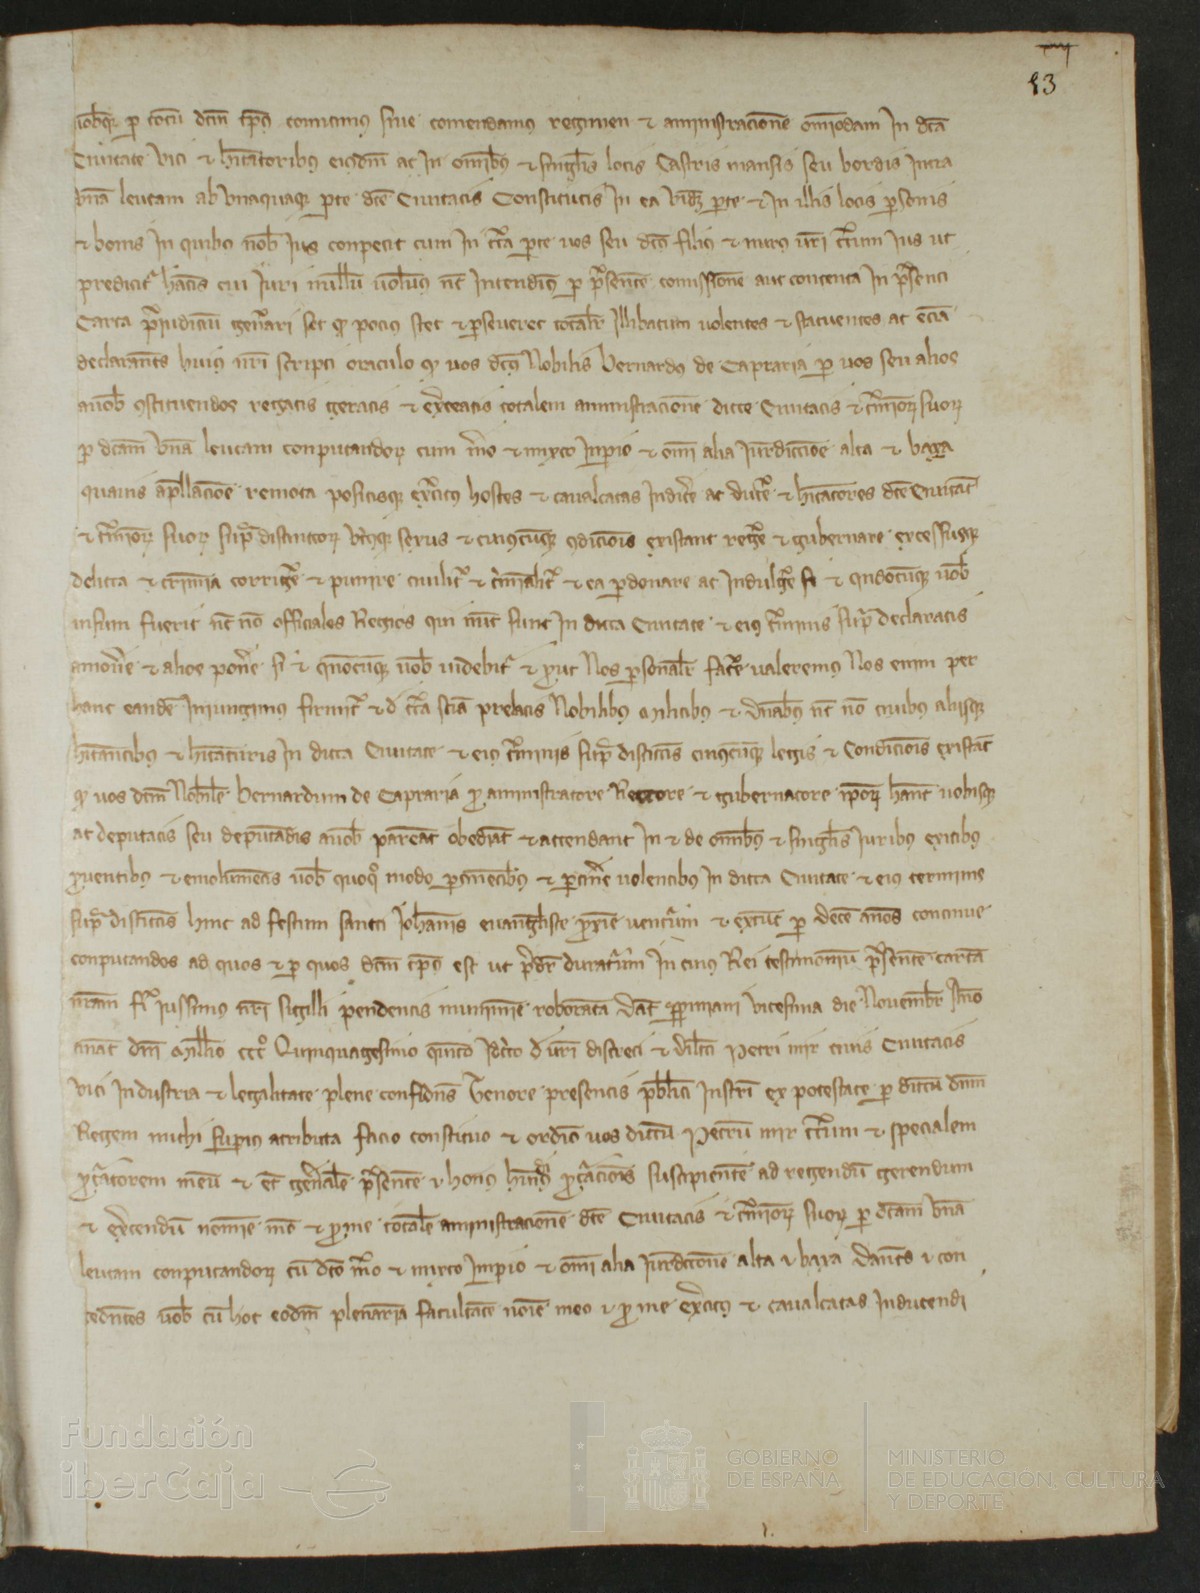 53
uobisque per totum dictum tempus comitimus sive comendamus regimen et aministracionem omnimodam in dicta
Civitate Vici et habitatoribus eiusdem ac in omnibus et singulis locis Castris mansis seu bordis intra
unam leucam ab unaquaque parte dicte Civitatis Constitutis in ea videlicet parte et in illis locis personis
et bonis in quibus nobis ius conpetit cum in certa parte vos seu dictus filius et nurus vestri certum ius ut
predicitur habeatis cui iuri nullum volumus nec intendimus per presentem comissionem aut contenta in presenti
Carta preiudicium generari set quod pocius stet et perseveret totaliter illibatum volentes et statuentes ac eciam
declarantes huius nostri scripti oraculo quod vos dictus Nobilis Bernardus de Capraria per vos seu alios
a vobis constituendos regatis geratis et exerceatis totalem aministracionem dicte Civitatis et terminorum suorum
per dictam unam leucam conputandorum cum mero et mixto inperio et omni alia iurediccione alta et baxa
quavis apellacione remota positisque exercitus hostes et cavalcatas indicere ac ducere et habitatores dicte Civitatis
et terminorum suorum supra distinctorum utriusque sexus et cuiuscumque condicionis existant regere et gubernare excessusque
delicta et crimina corrigere et punire civiliter et criminaliter et ea perdonare ac indulgere si et quandocumque vobis
visum fuerit nec non officiales Regios qui nunc sunt in dicta Civitate et eius terminis supra declaratis
amovere et alios ponere si et quandocumque vobis videbitur et prout Nos personaliter facere valeremus Nos enim per
hanc eandem iniungimus firmiter et de certa sciencia prelatis Nobilibus militibus et dominabus nec non civibus aliisque
habitantibus et habitaturis in dicta Civitate et eius terminis supra distinctis cuiuscumque legis et Condicionis existant
quod vos dictum Nobilem Bernardum de Capraria pro aministratore Rectore et gubernatore ipsorum habeant vobisque
ac deputatis seu deputandis a vobis pareant obediant et attendant in et de omnibus et singulis iuribus exitibus
proventibus et emolumentis vobis quoquo modo pertinentibus et pertinere volentibus in dicta Civitate et eius terminis
supra distinctis hinc ad festum sancti Iohannis evangeliste proxime venturum et extunc per decem annos continue
conputandos ad quos et per quos dictum tempus est ut predicitur duraturum In cuius Rei testimonium presentem cartam
nostram fieri iussimus nostri sigilli pendentis munimine roboratam Datum Perpiniani vicesima die Novembris Anno
a nativitate domini Millesimo CCCº Quinquagesimo quinto Idcirco de vestri discreti et dilecti Petri mir civis Civitatis
Vici industria et legalitate plene confidens Tenore presentis publici instrumenti ex potestate per dictum dominum
Regem michi superius atributa facio constituo et ordino vos dictum Petrum mir certum et specialem
procuratorem meum et eciam generalem presentem et honus huiusmodi procuracionis suscipientem ad regendum gerendum
et exercendum nomine meo et pro me totalem aministracionem dicte Civitatis et terminorum suorum per dictam unam
leucam conputandorum cum dicto mero et mixto imperio et omni alia iurediccione alta et baxa Dantes et con
cedentes vobis cum hoc eodem plenariam facultatem nomine meo et pro me exercitus et cavalcatas inducendi
Fundación
iberCaja
GOBIERNO
DE ESPAÑA
MINISTERIO
DE EDUCACIÓN, CULTURA
Y DEPORTE